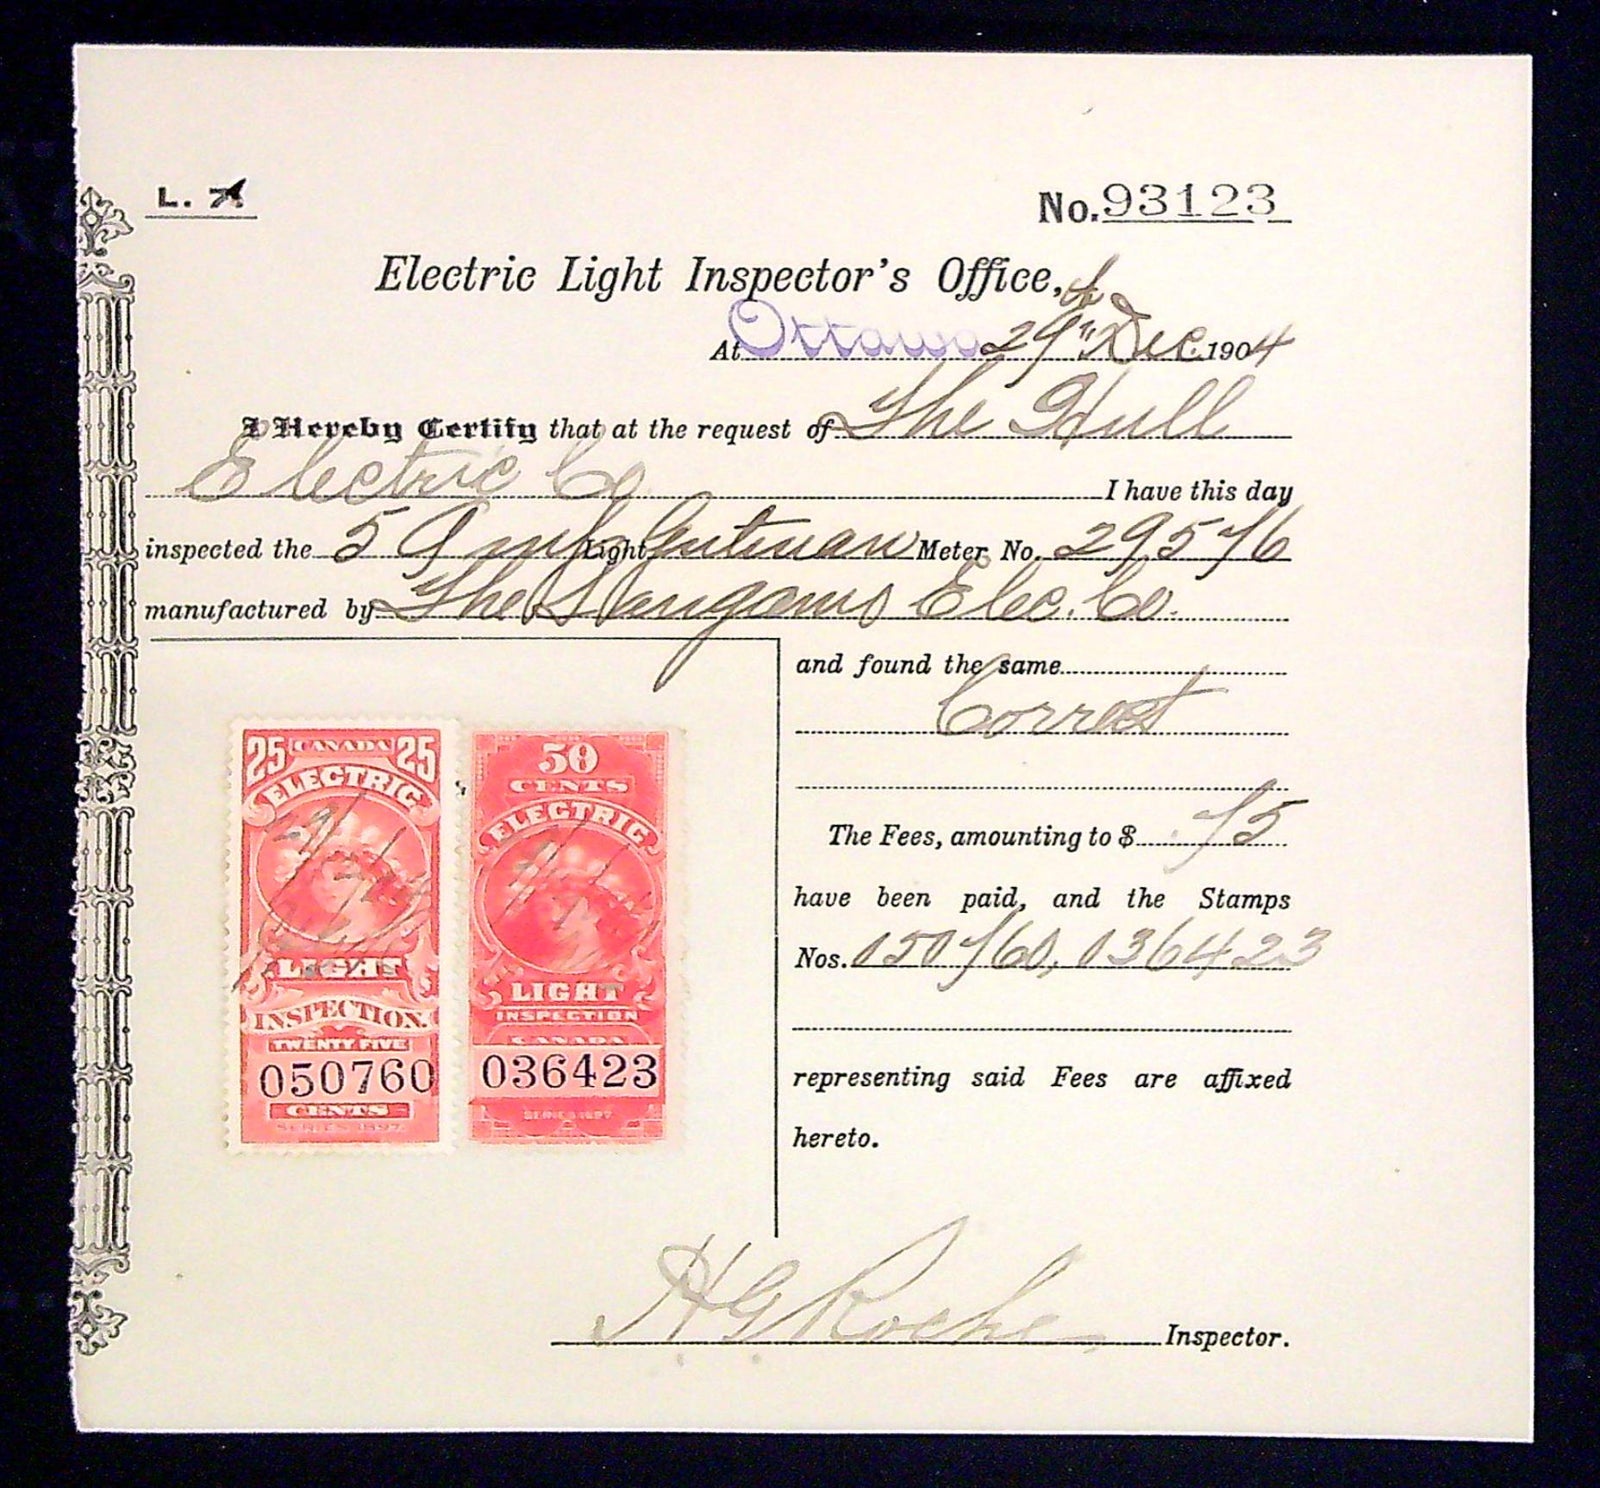 L. 7.
No. 93123
Electric Light Inspector's Office,
At Ottawa 29th Dec. 1904
I Hereby Certify that at the request of The Hull
Electric Co I have this day
inspected the 5 Amp Light Gutman Meter No. 29576
manufactured by The Sangamo Elec. Co.
and found the same
Correct
The Fees, amounting to $ .75
have been paid, and the Stamps
Nos. 050760, 036423
representing said Fees are affixed
hereto.
H G Roche Inspector.
25 CANADA 25
ELECTRIC
LIGHT
INSPECTION.
TWENTY FIVE
050760
CENTS
SERIES 1897
50
CENTS
ELECTRIC
LIGHT
INSPECTION
CANADA
036423
SERIES 1897